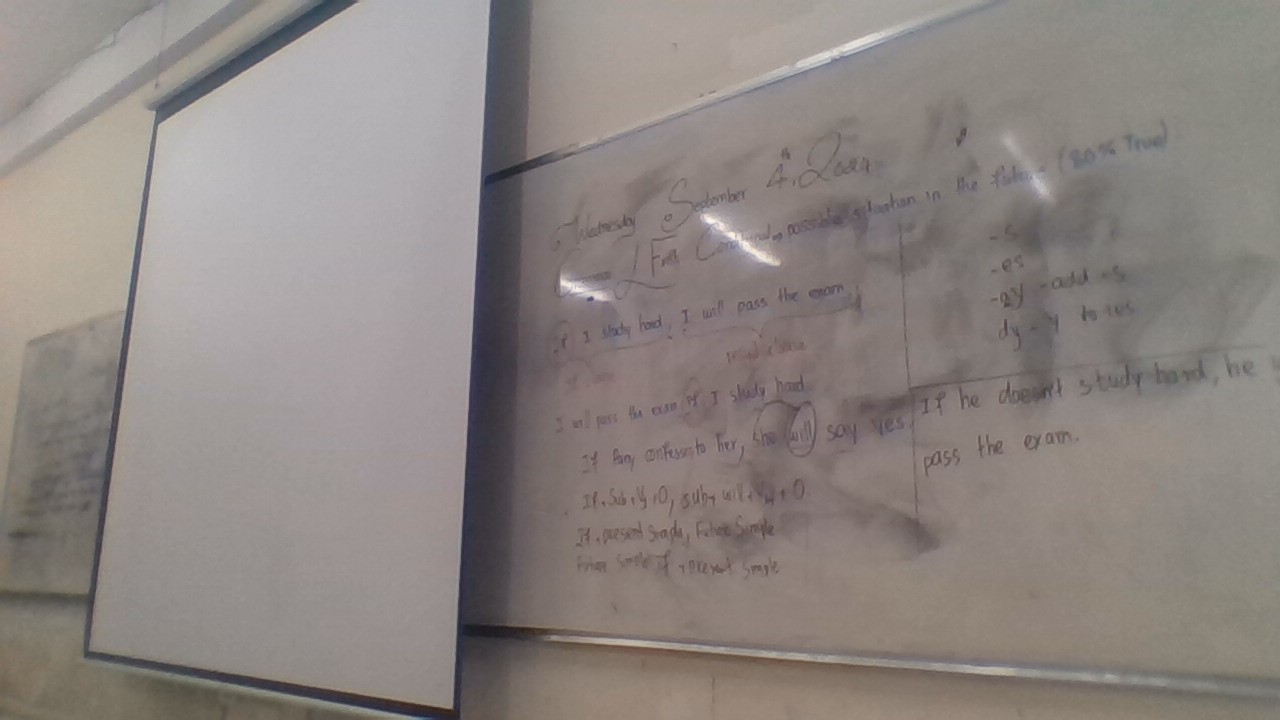 Wednesday, September 4th, 2024
First Conditional → possible situation in the future (80% True)
If I study hard, I will pass the exam.
main clause
I will pass the exam if I study hard.
If Pany confesses to her, she will say yes.
If + Sub + V1 + O, sub + will + + O
If + present simple, Future Simple
Future Simple if + present simple
-s
-es
-ay -add -s
dy - y to ies
If he doesn't study hard, he
pass the exam.